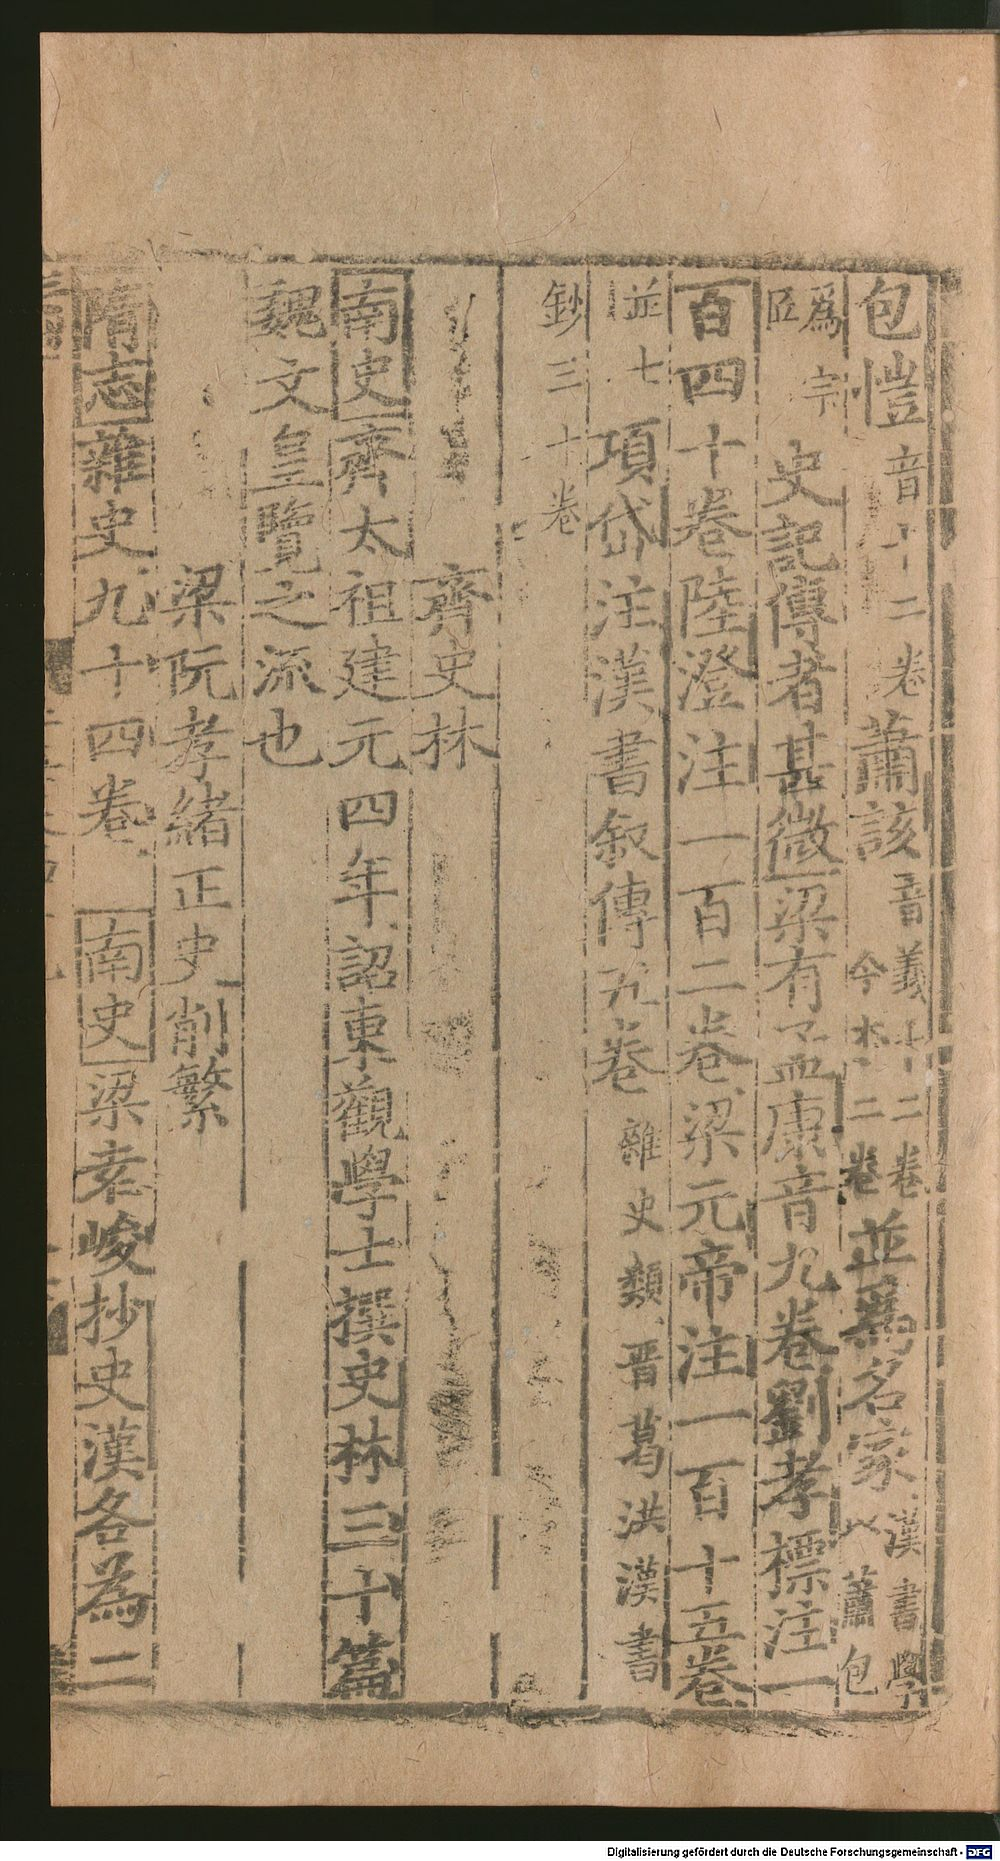 包愷音十二卷蕭該音義十二卷今本二卷並爲名家漢書學以蕭包
爲宗匠史記傳者甚微梁有孟康音九卷劉孝標注一
百四十卷陸澄注一百二卷梁元帝注一百十五卷
並七項岱注漢書叙傳五卷雜史類晋葛洪漢書
鈔三十卷
齊史林
南史齊太祖建元四年詔東觀學士撰史林三十篇
魏文皇覽之流也
梁阮孝緒正史削繁
隋志雜史九十四卷 南史梁袁峻抄史漢各為二
Digitalisierung gefördert durch die Deutsche Forschungsgemeinschaft - DFG